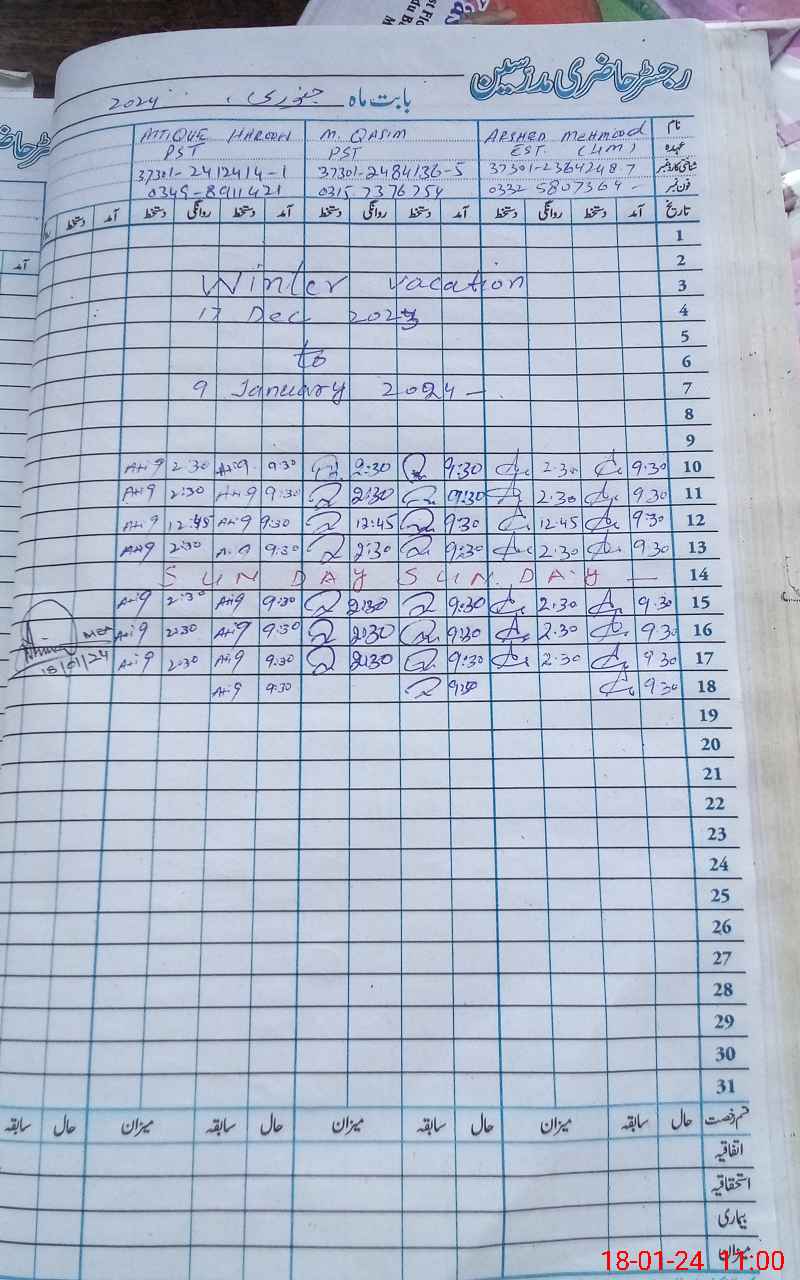 رجسٹر حاضری مدرسین
بابت ماہ جنوری 2024
نام ARSHED MEHMOOD M. QASIM ATTIQUE HAROON
عہدہ EST (HM) PST PST
شناختی کارڈ نمبر 37301-2364248-7 37301-2484136-5 37301-2412414-1
فون نمبر 0332 5807364 0315 7376754 0349-8911421
تاریخ آمد دستخط روانگی دستخط آمد دستخط روانگی دستخط آمد دستخط روانگی دستخط آمد دستخط
1
2
3 Winter vacation
4 17 Dec 2023
5
6 to
7 9 January 2024
8
9
10 9.30 2.30 9:30 2:30 9.30 2.30
11 9.30 2.30 9:30 2:30 9:30 2:30
12 9.30 12.45 9:30 12.45 9:30 12:45
13 9.30 2.30 9:30 2:30 9:30 2:30
14 SUNDAY SUNDAY
15 9.30 2.30 9:30 2:30 9:30 2:30
16 9.30 2.30 9:30 2:30 9:30 2:30
17 9.30 2.30 9:30 2:30 9:30 2:30
18 9.30 9:30 9:30
MEA
15/01/24
19
20
21
22
23
24
25
26
27
28
29
30
31
قسم رخصت حال سابقہ میزان حال سابقہ میزان حال سابقہ میزان حال سابقہ
اتفاقیہ
استحقاقیہ
بیماری
میزان
18-01-24 11:00